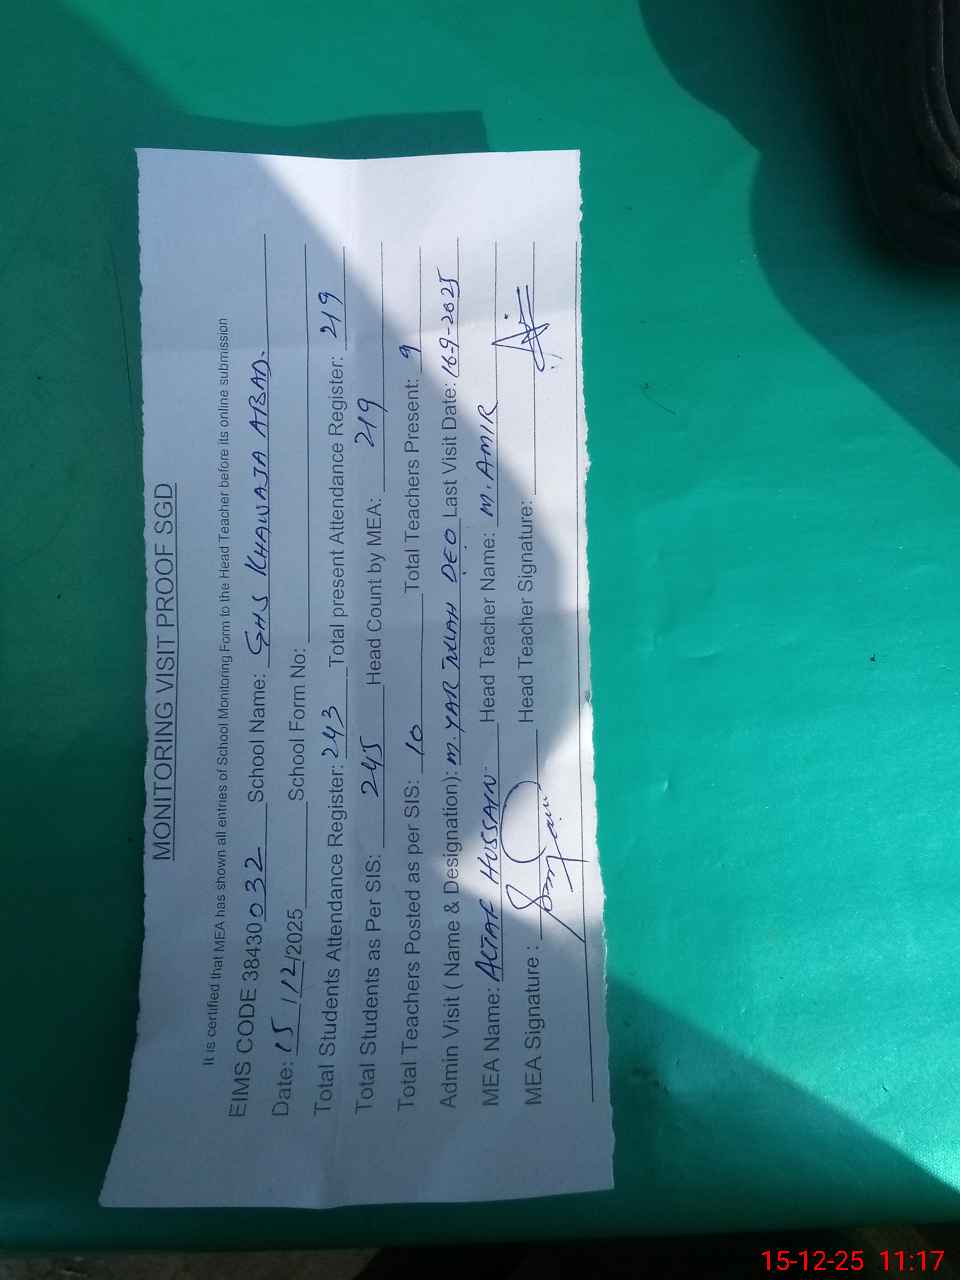 MONITORING VISIT PROOF SGD
It is certified that MEA has shown all entries of School Monitoring Form to the Head Teacher before its online submission
EIMS CODE 38430032 School Name: GHS KHAWAJA ABAD.
Date: 15/12/2025 School Form No:
Total Students Attendance Register: 243 Total present Attendance Register: 219
Total Students as Per SIS: 245 Head Count by MEA: 219
Total Teachers Posted as per SIS: 10 Total Teachers Present: 9
Admin Visit ( Name & Designation): M. YAR DEO Last Visit Date: 16-9-2025
MEA Name: ALTAF HUSSAIN Head Teacher Name: M. AMIR
MEA Signature : Head Teacher Signature:
15-12-25 11:17